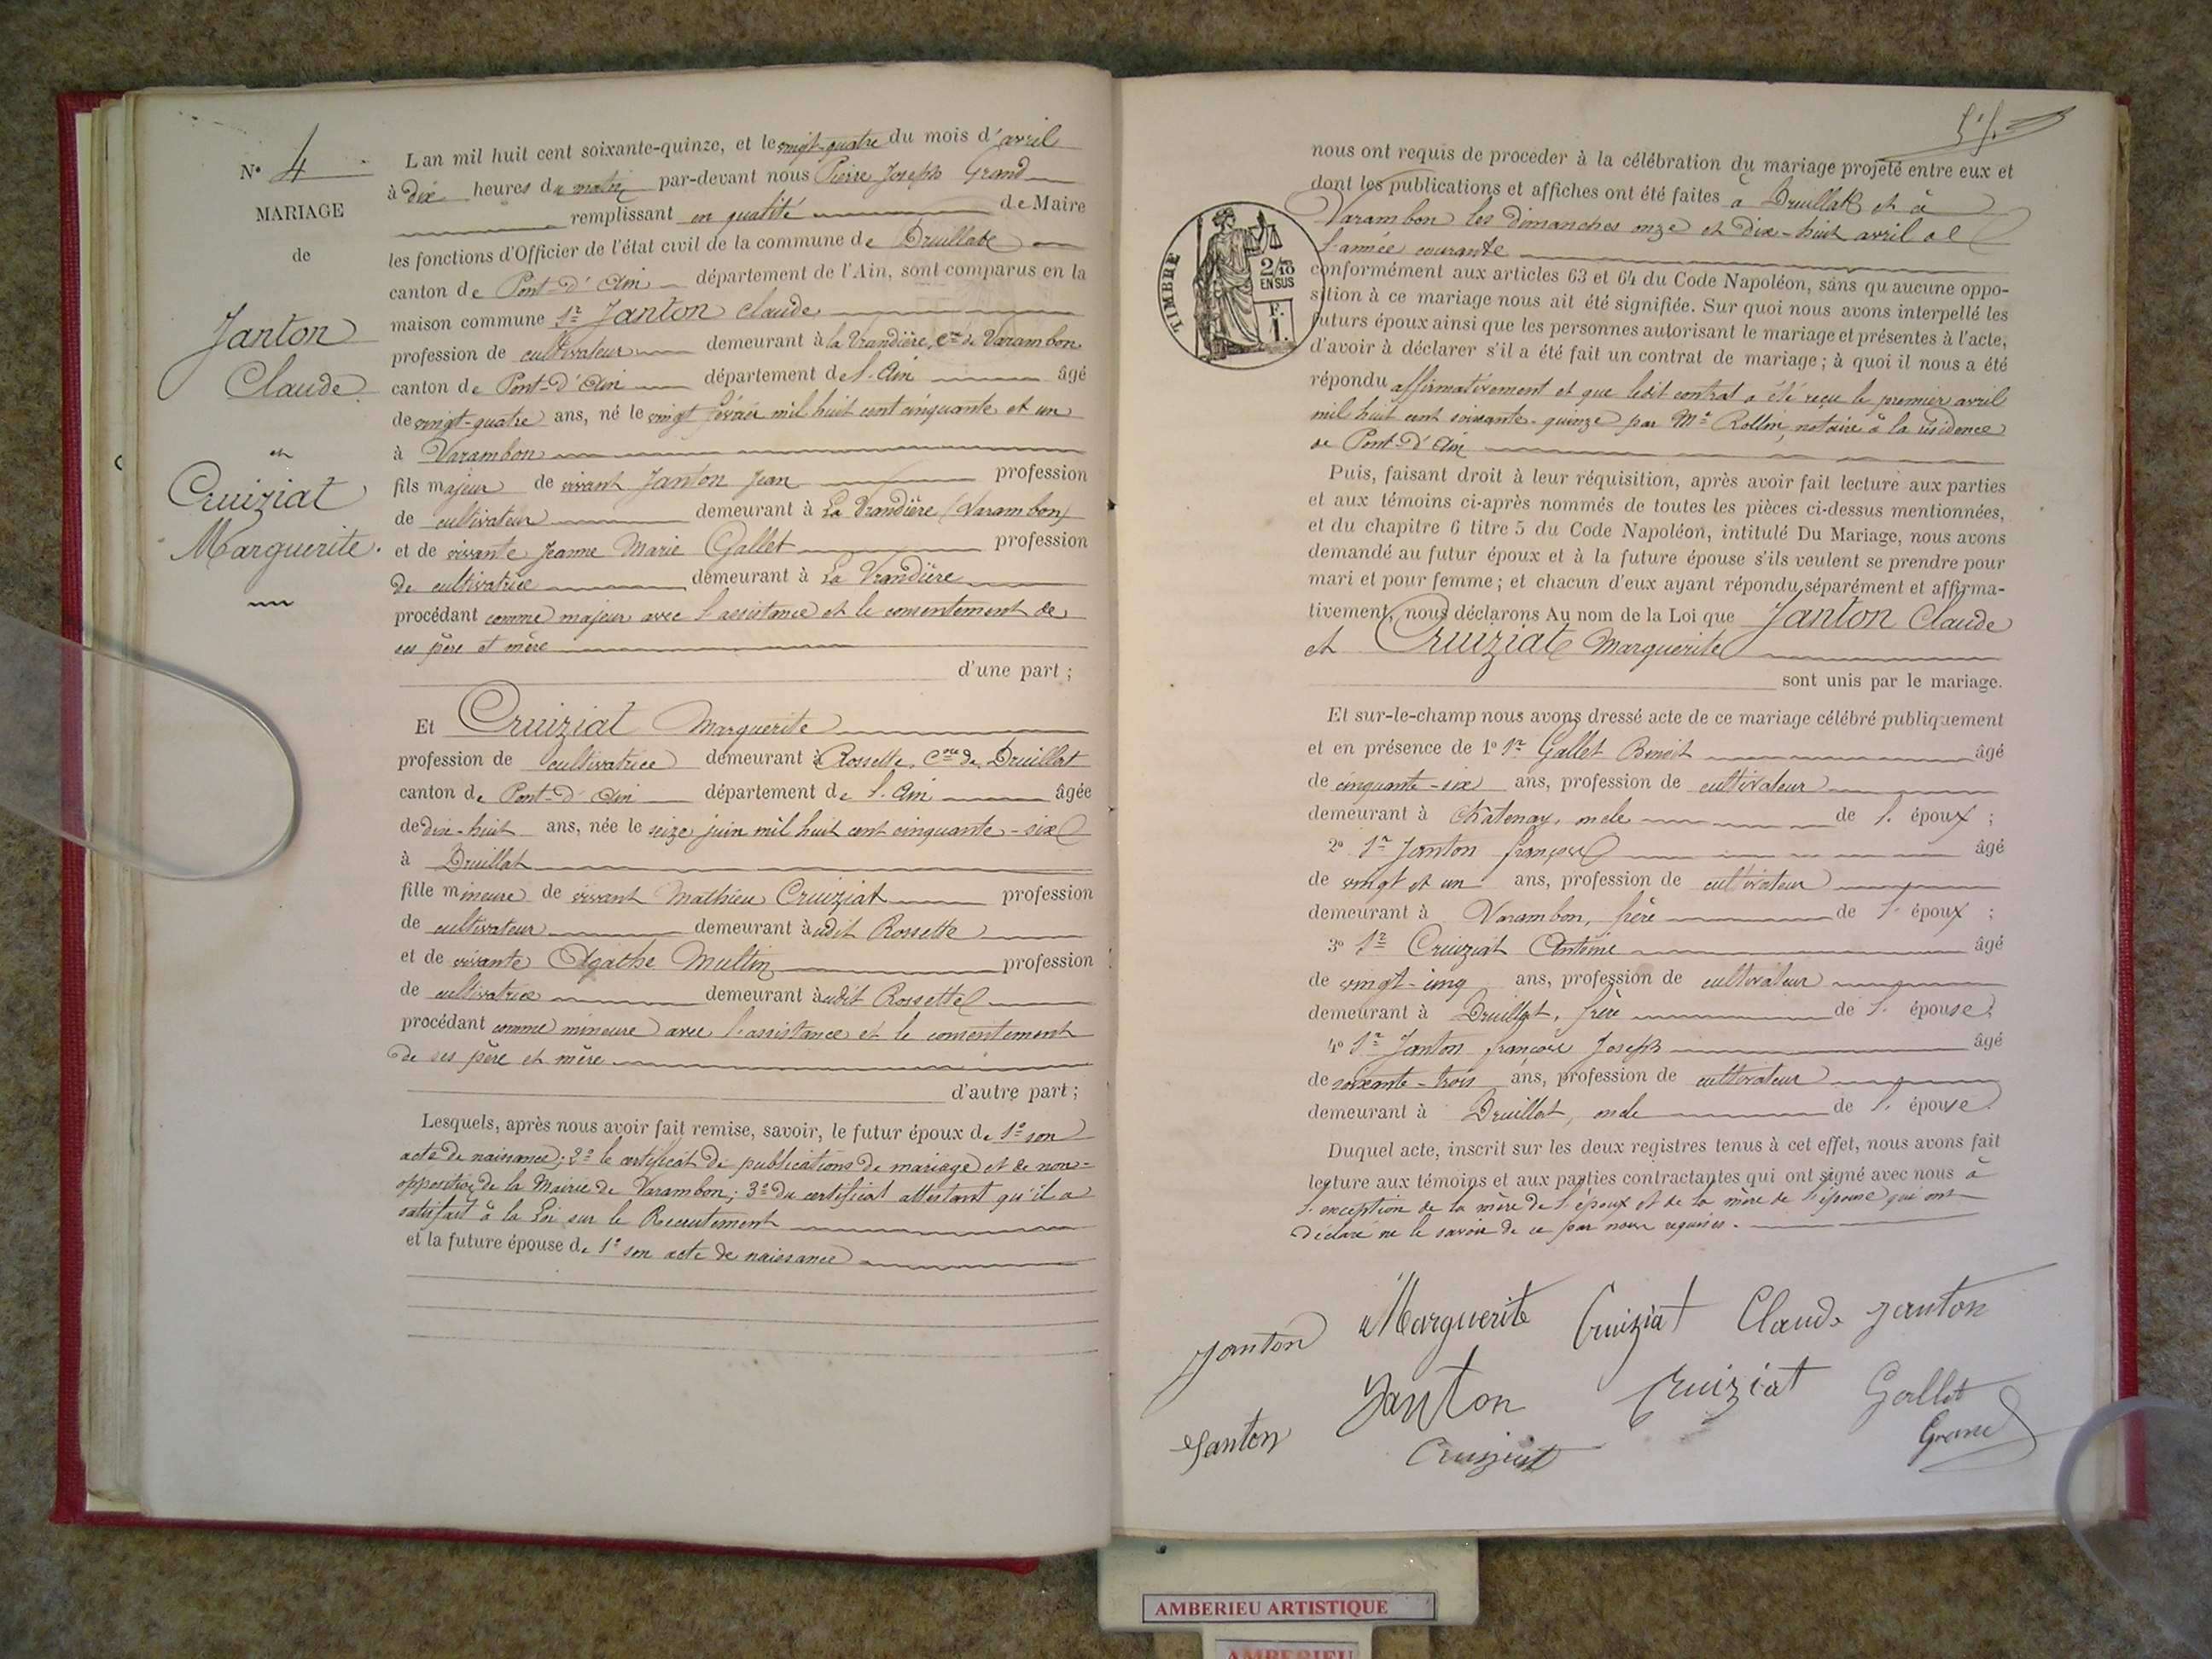 N° 4
MARIAGE
de
Janton
Claude
et
Cruiziat
Marguerite.
L'an mil huit cent soixante-quinze, et le vingt-quatre du mois d'avril
à dix heures du matin par-devant nous Pierre Joseph Grand
remplissant en qualité de Maire
les fonctions d'Officier de l'état civil de la commune de Druillat
canton de Pont-d'Ain département de l'Ain, sont comparus en la
maison commune Sr Janton Claude
profession de cultivateur demeurant à la Vrandière, cne de Varambon
canton de Pont-d'Ain département de l'Ain âgé
de vingt-quatre ans, né le vingt février mil huit cent cinquante et un
à Varambon
fils majeur de vivant Janton Jean profession
de cultivateur demeurant à La Vrandière (Varambon)
et de vivante Jeanne Marie Gallet profession
de cultivatrice demeurant à La Vrandière
procédant comme majeur avec l'assistance et le consentement de
ses père et mère
d'une part ;
Et Cruiziat Marguerite
profession de cultivatrice demeurant à Rossette, Cne de Druillat
canton de Pont-d'Ain département de l'Ain âgée
de dix-huit ans, née le seize juin mil huit cent cinquante-six
à Druillat
fille mineure de vivant Mathieu Cruiziat profession
de cultivateur demeurant audit Rossette
et de vivante Agathe Multin profession
de cultivatrice demeurant audit Rossette
procédant comme mineure avec l'assistance et le consentement
de ses père et mère
d'autre part ;
Lesquels, après nous avoir fait remise, savoir, le futur époux de 1° son
acte de naissance; 2° le certificat de publications de mariage et de non-
opposition de la Mairie de Varambon; 3° du certificat attestant qu'il a
satisfait à la Loi sur le Recrutement
et la future épouse de 1° son acte de naissance
nous ont requis de proceder à la célébration du mariage projeté entre eux et
dont les publications et affiches ont été faites à Druillat et à
Varambon les dimanches onze et dix-huit avril de
l'année courante
TIMBRE
2/10
EN SUS
F.
1.
conformément aux articles 63 et 64 du Code Napoléon, sans qu'aucune oppo-
sition à ce mariage nous ait été signifiée. Sur quoi nous avons interpellé les
futurs époux ainsi que les personnes autorisant le mariage et présentes à l'acte,
d'avoir à déclarer s'il a été fait un contrat de mariage ; à quoi il nous a été
répondu affirmativement et que ledit contrat a été reçu le premier avril
mil huit cent soixante-quinze par Me Rollin, notaire à la résidence
de Pont-d'Ain
Puis, faisant droit à leur réquisition, après avoir fait lecture aux parties
et aux témoins ci-après nommés de toutes les pièces ci-dessus mentionnées,
et du chapitre 6 titre 5 du Code Napoléon, intitulé Du Mariage, nous avons
demandé au futur époux et à la future épouse s'ils veulent se prendre pour
mari et pour femme ; et chacun d'eux ayant répondu séparément et affirma-
tivement, nous déclarons Au nom de la Loi que Janton Claude
et Cruiziat Marguerite
sont unis par le mariage.
Et sur-le-champ nous avons dressé acte de ce mariage célébré publiquement
et en présence de 1° Sr Gallet Benoit âgé
de cinquante-six ans, profession de cultivateur
demeurant à Chatenay, oncle de l'époux ;
2° Sr Janton françois âgé
de vingt et un ans, profession de cultivateur
demeurant à Varambon, frère de l'époux ;
3° Sr Cruiziat Antoine âgé
de vingt-cinq ans, profession de cultivateur
demeurant à Druillat, frère de l'épouse
4° Sr Janton françois Joseph âgé
de soixante-trois ans, profession de cultivateur
demeurant à Druillat, oncle de l'épouse
Duquel acte, inscrit sur les deux registres tenus à cet effet, nous avons fait
lecture aux témoins et aux parties contractantes qui ont signé avec nous à
l'exception de la mère de l'époux et de la mère de l'épouse qui ont
déclaré ne le savoir de ce par nous requises.
Janton Marguerite Cruiziat Claude Janton
Janton Janton Cruiziat Gallet
Cruiziat Grand
AMBERIEU ARTISTIQUE
AMBERIEU